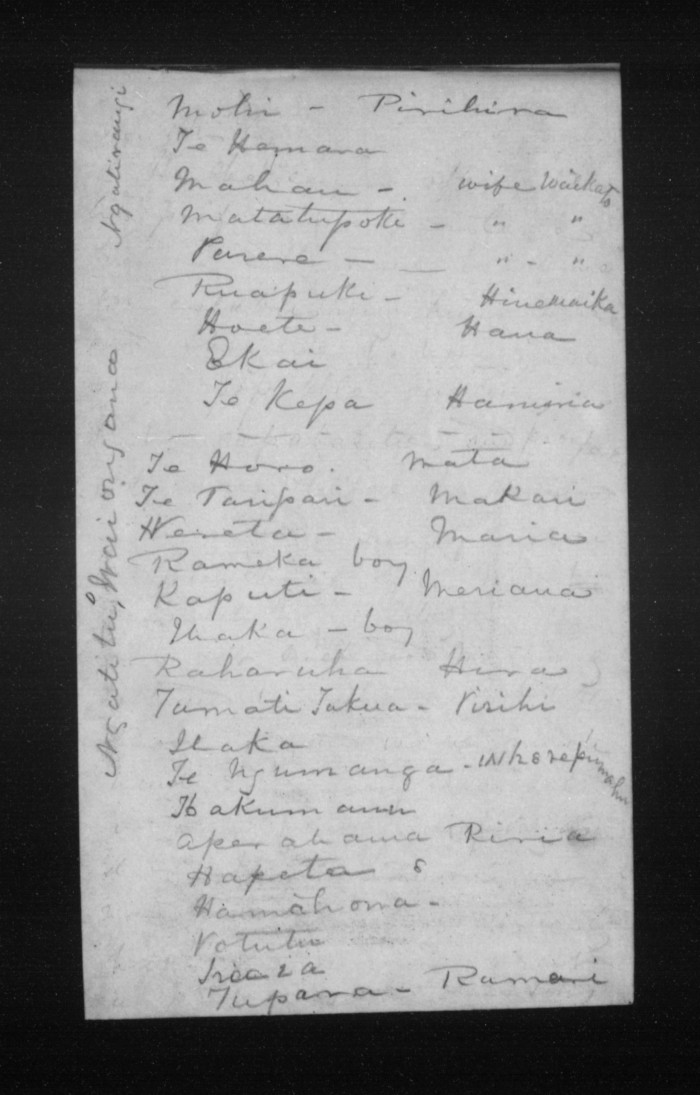 Mohi - Pirihira
Te Hamara
Mahau - wife Waikato
Matatupoki - " "
Parere - " - "
Ruapuki - Hinewaika
Hoete - Hana
Ekai
Te Kepa Hamiria
Te Horo. Mata
Te Taripari - Makari
Wereta - Maria
Rameka boy
Kaputi - Meriana
Ihaka - boy
Raharuha Hira
Tamati Takua - Pirihi
Ihaka
Te Ngumanga -
Aperahama Riria
Hapeta
Hamahona -
Potutu
Tupara - Ramari
Ngatitu, Wai ongana Ngatirangi